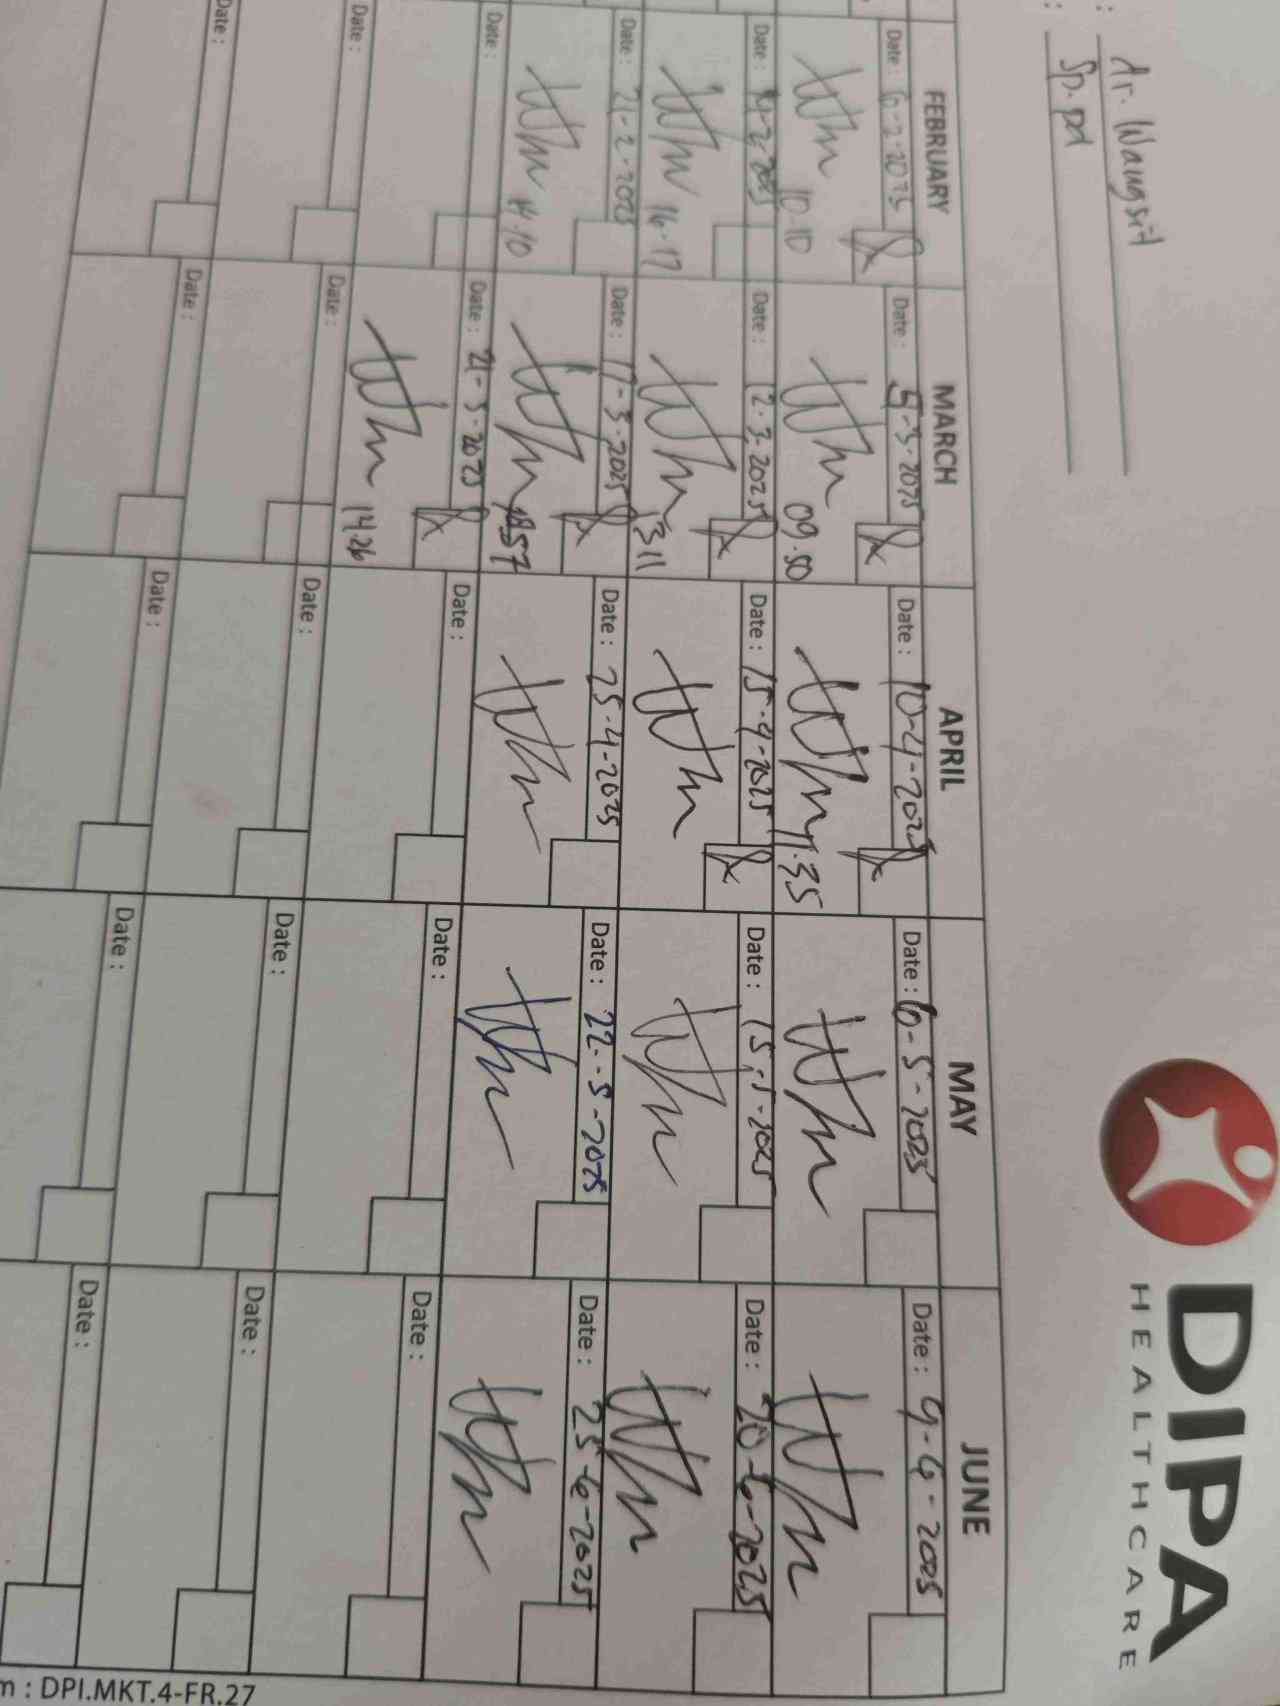 : dr. Wangsit
: Sp. pd
DIPA
HEALTHCARE
FEBRUARY
MARCH
APRIL
MAY
JUNE
Date : 6-2-2025
10.10
Date : 5-3-2025
09.50
Date : 10-4-2025
Date : 6-5-2025
Date : 9-6-2025
Date :
16.17
Date : 12.3.2025
1311
Date : 15-4-2025
Date : 15-5-2025
Date : 20-6-2025
Date : 21-2-2025
14.10
Date : 17-3-2025
Date : 25-4-2025
Date : 22-5-2025
Date : 25-6-2025
Date :
Date : 21-3-2025
14.26
Date :
Date :
Date :
Date :
Date :
Date :
Date :
Date :
Date :
Date :
Date :
Date :
Date :
m : DPI.MKT.4-FR.27